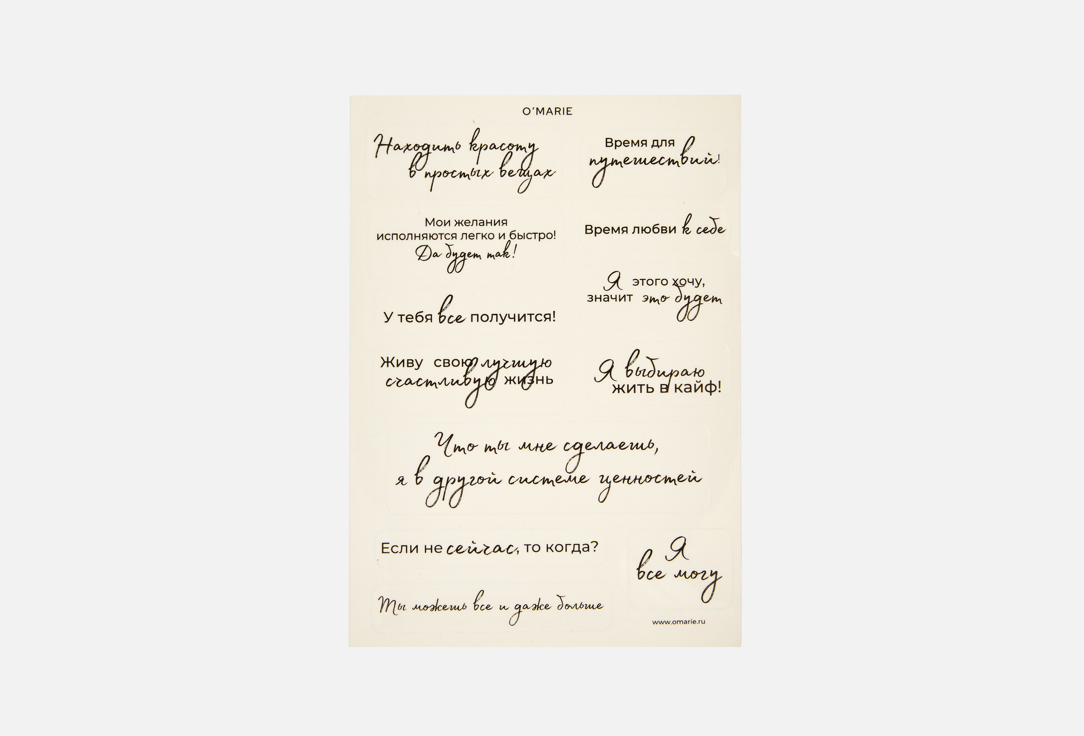 O'MARIE
Находить красоту
в простых вещах
Время для
путешествий!
Мои желания
исполняются легко и быстро!
Да будет так!
Время любви к себе
Я этого хочу,
значит это будет
У тебя все получится!
Живу свою лучшую
счастливую жизнь
Я выбираю
жить в кайф!
Что ты мне сделаешь,
я в другой системе ценностей
Если не сейчас, то когда?
Я
все могу
Ты можешь все и даже больше
www.omarie.ru